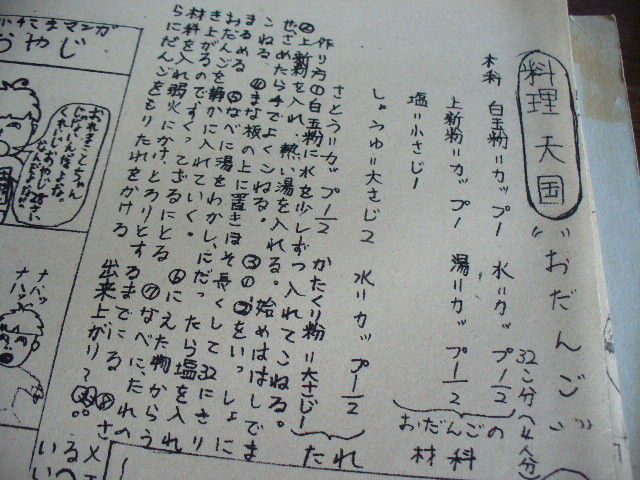 料理天国 “おだんご”
32こ分(4人分)
木料 白玉粉=カップ1 水=カップ1/2
上新粉=カップ1 湯=カップ1/2
塩=小さじ1
おだんごの材料
しょうゆ=大さじ2 水=カップ1/2
さとう=カップ1/2 かたくり粉=大さじ1
たれ
作り方①白玉粉に水を少しずつ入れてこねる。
②上新粉を入れ、熱い湯を入れる。始めははしでま
ぜさめたら手でよくこねる。③①②をいっしょに
こねる。④まな板の上に置きほそ長くして32にきり
まるめる ⑤なべに湯をわかし、にだったら塩を入れ
おだんごを静かに入れていく。⑥にえた物からう
き上がるので、すくってざるにとる ⑦なべに、たれの
材料を入れ弱火にかけ、とろりとするまでにる ⑧さ
らにだんごをもりたれをかける 出来上がり?
おやじ
ナハッ
ナハッ